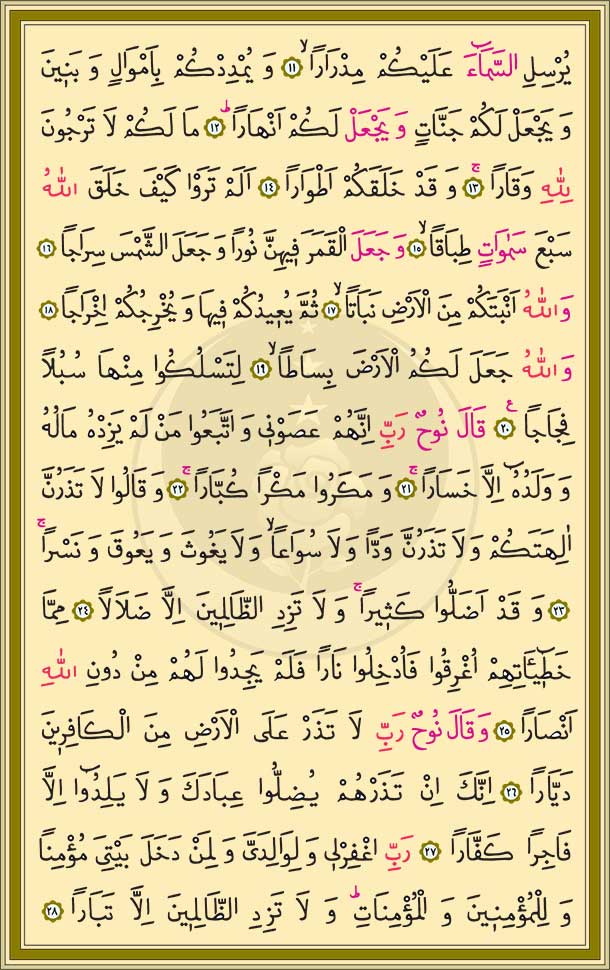 يُرْسِلِ السَّمَٓاءَ عَلَيْكُمْ مِدْرَارًاۙ ﴿١١﴾ وَ يُمْدِدْكُمْ بِاَمْوَالٍ وَ بَنٖينَ
وَ يَجْعَلْ لَكُمْ جَنَّاتٍ وَ يَجْعَلْ لَكُمْ اَنْهَارًاۜ ﴿١٢﴾ مَا لَكُمْ لَا تَرْجُونَ
لِلّٰهِ وَقَارًاۚ ﴿١٣﴾ وَ قَدْ خَلَقَكُمْ اَطْوَارًا ﴿١٤﴾ اَلَمْ تَرَوْا كَيْفَ خَلَقَ اللّٰهُ
سَبْعَ سَمٰوَاتٍ طِبَاقًاۙ ﴿١٥﴾ وَ جَعَلَ الْقَمَرَ فٖيهِنَّ نُورًا وَ جَعَلَ الشَّمْسَ سِرَاجًا ﴿١٦﴾
وَاللّٰهُ اَنْبَتَكُمْ مِنَ الْاَرْضِ نَبَاتًاۙ ﴿١٧﴾ ثُمَّ يُعٖيدُكُمْ فٖيهَا وَ يُخْرِجُكُمْ اِخْرَاجًا ﴿١٨﴾
وَاللّٰهُ جَعَلَ لَكُمُ الْاَرْضَ بِسَاطًاۙ ﴿١٩﴾ لِتَسْلُكُوا مِنْهَا سُبُلًا
فِجَاجًا ࣖ ﴿٢٠﴾ قَالَ نُوحٌ رَبِّ اِنَّهُمْ عَصَوْنٖي وَ اتَّبَعُوا مَنْ لَمْ يَزِدْهُ مَالُهُ
وَ وَلَدُهُٓ اِلَّا خَسَارًاۚ ﴿٢١﴾ وَ مَكَرُوا مَكْرًا كُبَّارًاۚ ﴿٢٢﴾ وَ قَالُوا لَا تَذَرُنَّ
اٰلِهَتَكُمْ وَ لَا تَذَرُنَّ وَدًّا وَ لَا سُوَاعًاۙ وَ لَا يَغُوثَ وَ يَعُوقَ وَ نَسْرًاۚ
﴿٢٣﴾ وَ قَدْ اَضَلُّوا كَثٖيرًاۚ وَ لَا تَزِدِ الظَّالِمٖينَ اِلَّا ضَلَالًا ﴿٢٤﴾ مِمَّا
خَطٖٓيـَٔاتِهِمْ اُغْرِقُوا فَاُدْخِلُوا نَارًا فَلَمْ يَجِدُوا لَهُمْ مِنْ دُونِ اللّٰهِ
اَنْصَارًا ﴿٢٥﴾ وَ قَالَ نُوحٌ رَبِّ لَا تَذَرْ عَلَى الْاَرْضِ مِنَ الْكَافِرٖينَ
دَيَّارًا ﴿٢٦﴾ اِنَّكَ اِنْ تَذَرْهُمْ يُضِلُّوا عِبَادَكَ وَ لَا يَلِدُٓوا اِلَّا
فَاجِرًا كَفَّارًا ﴿٢٧﴾ رَبِّ اغْفِرْلٖي وَ لِوَالِدَيَّ وَ لِمَنْ دَخَلَ بَيْتِيَ مُؤْمِنًا
وَ لِلْمُؤْمِنٖينَ وَ الْمُؤْمِنَاتِۜ وَ لَا تَزِدِ الظَّالِمٖينَ اِلَّا تَبَارًا ﴿٢٨﴾